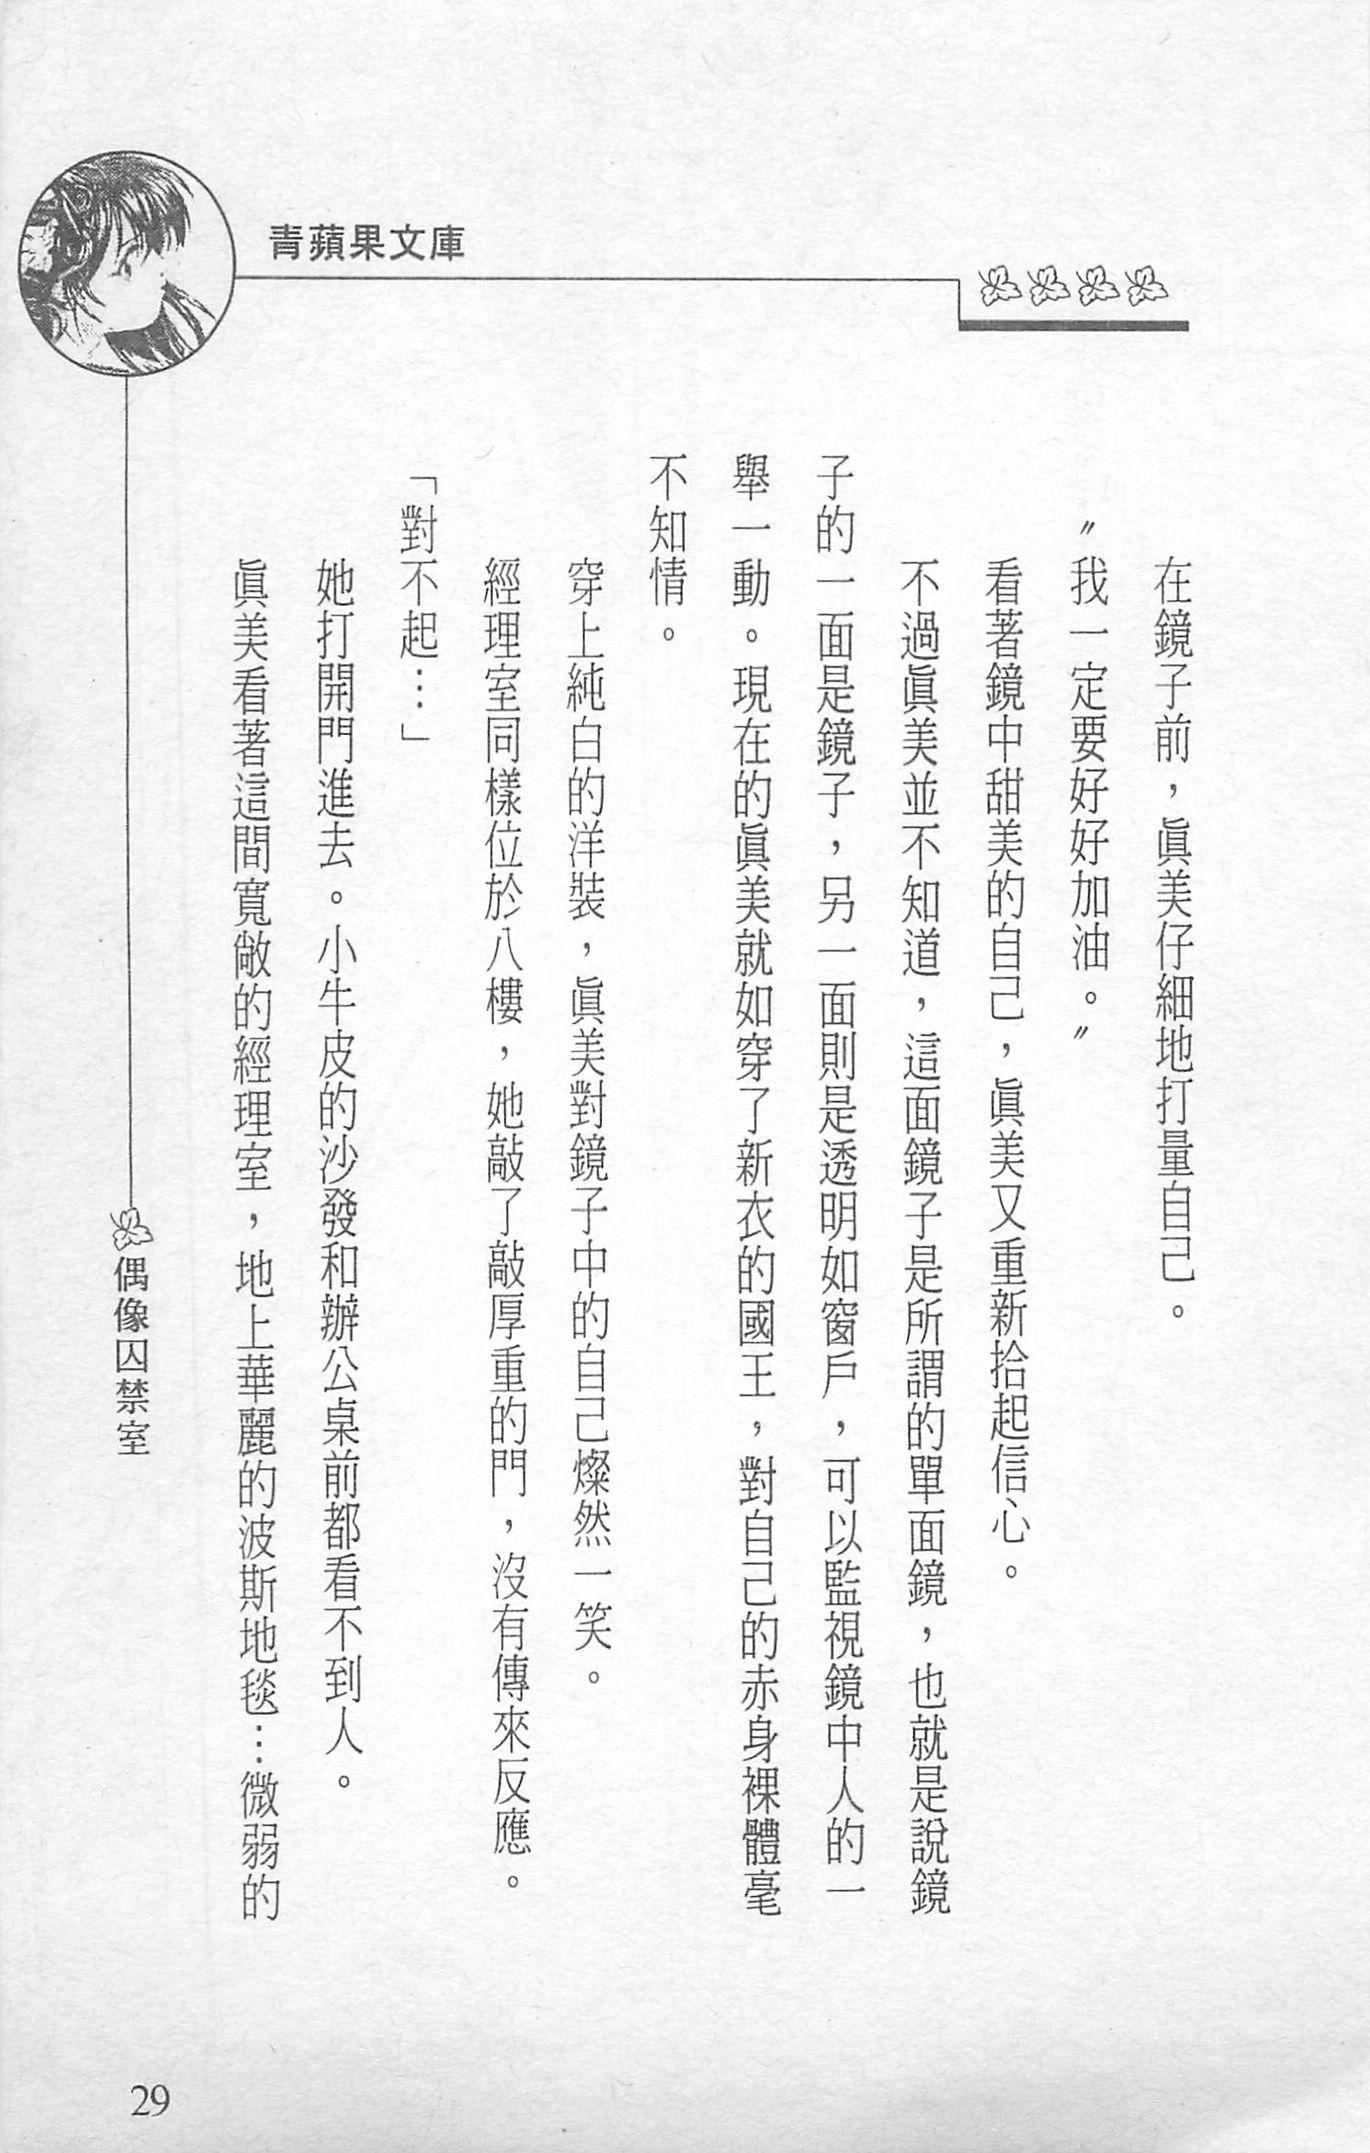 青蘋果文庫
在鏡子前，眞美仔細地打量自己。
〝我一定要好好加油。〞
看著鏡中甜美的自己，眞美又重新拾起信心。
不過眞美並不知道，這面鏡子是所謂的單面鏡，也就是說鏡
子的一面是鏡子，另一面則是透明如窗戶，可以監視鏡中人的一
舉一動。現在的眞美就如穿了新衣的國王，對自己的赤身裸體毫
不知情。
穿上純白的洋裝，眞美對鏡子中的自己燦然一笑。
經理室同樣位於八樓，她敲了敲厚重的門，沒有傳來反應。
「對不起…」
她打開門進去。小牛皮的沙發和辦公桌前都看不到人。
眞美看著這間寬敞的經理室，地上華麗的波斯地毯…微弱的
偶像囚禁室
29